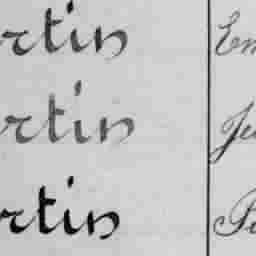 rtin Em
rtin Je
rtin